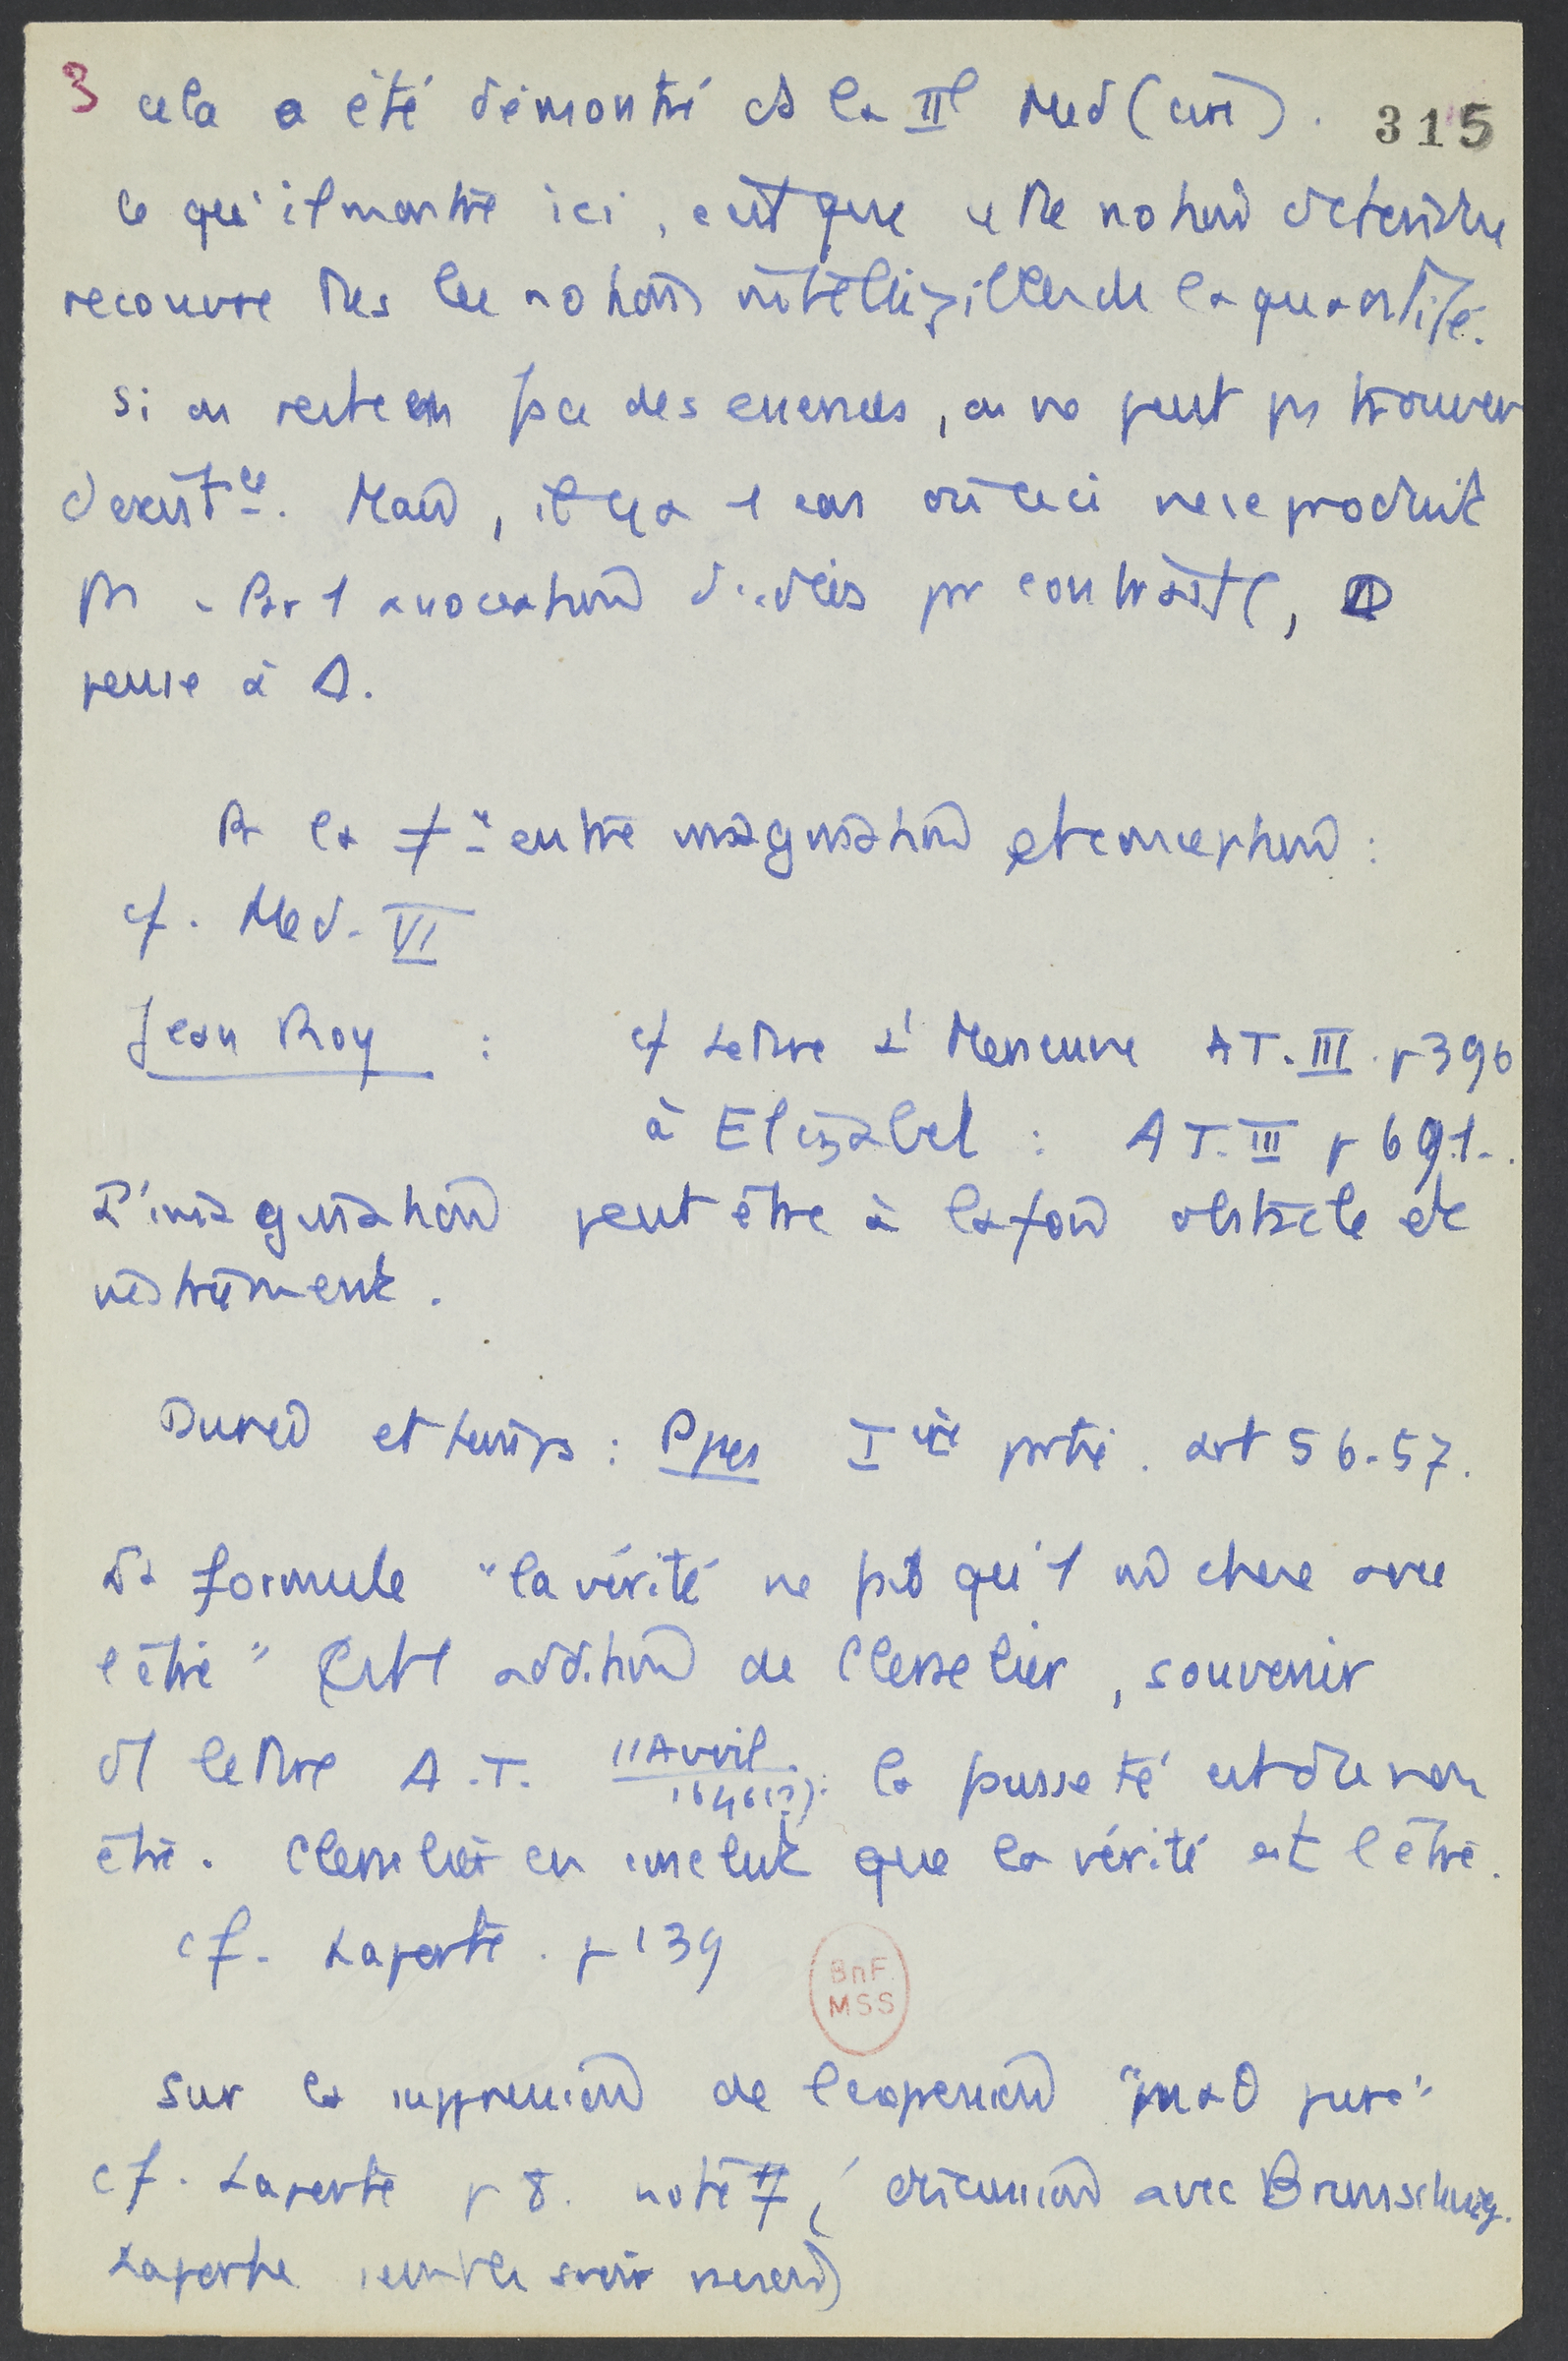 3 cela a été démontré ds la IIe Med (cire). 315
ce qu'il montre ici, c'est que cette notion d'étendue
recouvre ttes les notions intelligibles de la quantité.
si on reste en face des essences, on ne peut pas trouver
d'existce. Mais, il y a 1 cas où ceci ne se produit
pas. Par 1 association d'idées par contraste, D
pense à Δ.
Pr la ≠ce entre imagination et conception :
cf. Med. VI
Jean Roy : cf Lettre à Mersenne AT. III p 396
à Elizabet : AT. III p 691.
L'imagination peut être à la fois obstacle et
instrument.
Durée et temps : Ppes Iière partie. art 56-57.
La formule "la vérité ne fait qu'1 mê chose avec
l'être" Cst 1 addition de Clerselier, souvenir
d'1 lettre A.T. 11 Avril 1646(?) : la fausseté est du non
être. Clerselier en conclut que la vérité est l'être.
cf. Laporte. p 139
BnF
MSS
Sur la suppression de l'expression "mao pure"
cf. Laporte p 8. note 7, (discussion avec Brunschwig.
Laporte semble avoir raison)